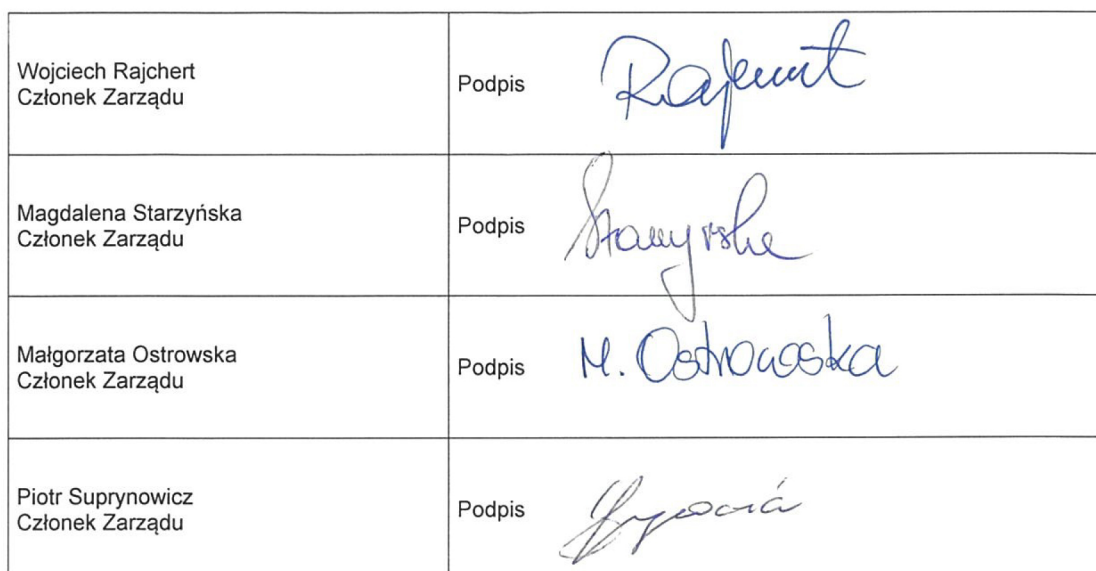 Wojciech Rajchert
Członek Zarządu
Podpis
Magdalena Starzyńska
Członek Zarządu
Podpis
Małgorzata Ostrowska
Członek Zarządu
Podpis
M. Ostrowska
Piotr Suprynowicz
Członek Zarządu
Podpis